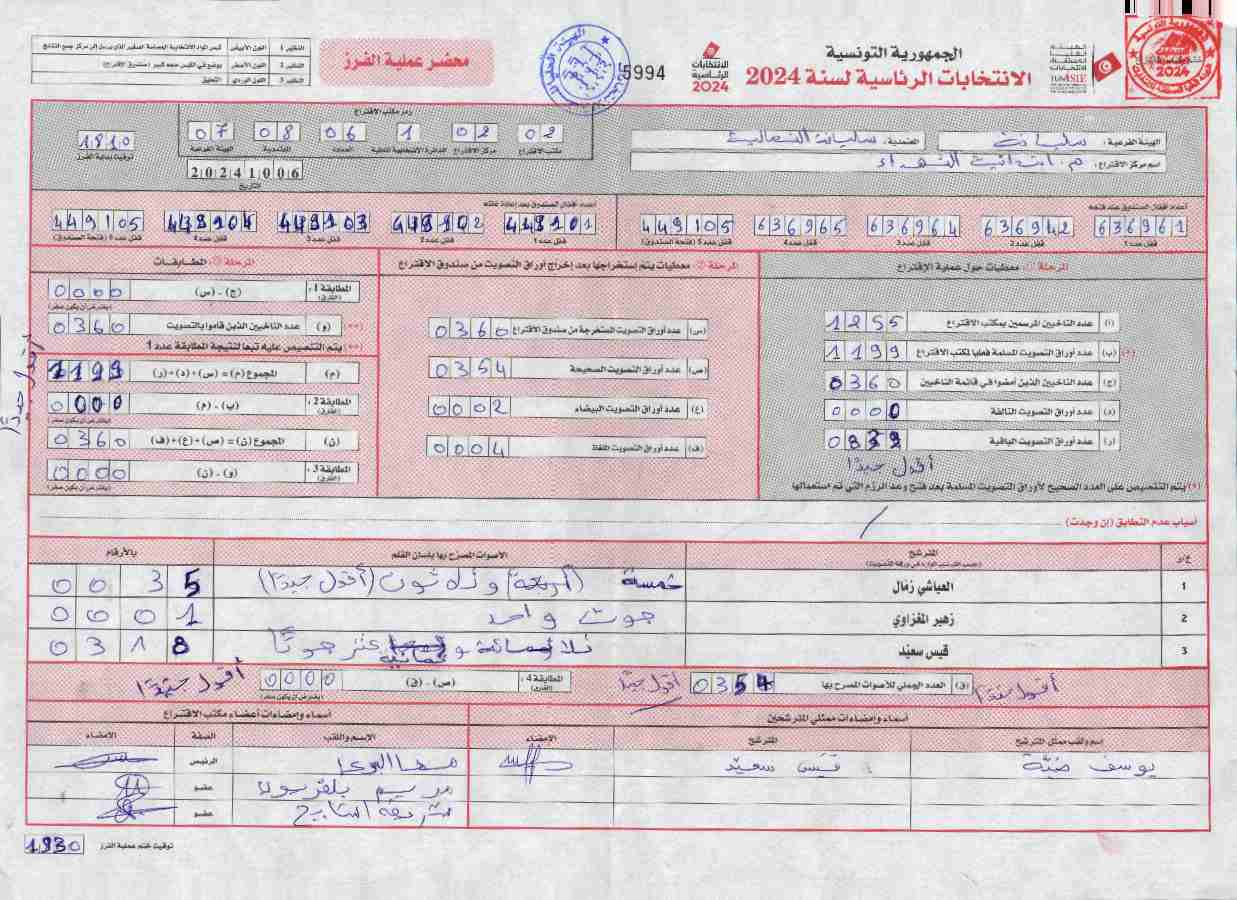 الجمهورية التونسية
الانتخابات الرئاسية لسنة 2024
الانتخابات الرئاسية 2024
5994
محضر عملية الفرز
النظير 1 اللون الأبيض
النظير 2 اللون الأصفر
النظير 3 اللون الوردي التعليق
الهيئة الفرعية : سليانة
المعتمدية : سليانة الشمالية
اسم مركز الاقتراع :
رمز مكتب الاقتراع
02 02 1 06 08 07
مكتب الاقتراع مركز الاقتراع الدائرة الانتخابية المحلية العمادة المعتمدية الهيئة الفرعية
1810
توقيت بداية الفرز
20241006
التاريخ
أعداد أقفال الصندوق عند فتحه
636961 636942 636964 636965 449105
قفل عدد 1 قفل عدد 2 قفل عدد 3 قفل عدد 4 قفل عدد 5 (فتحة الصندوق)
أعداد أقفال الصندوق بعد إعادة غلقه
449105
قفل عدد 1 قفل عدد 2 قفل عدد 3 قفل عدد 4 قفل عدد 5 (فتحة الصندوق)
المرحلة ①: معطيات حول عملية الاقتراع
(أ) عدد الناخبين المرسمين بمكتب الاقتراع 1255
(*) (ب) عدد أوراق التصويت المسلمة فعليا لمكتب الاقتراع 1199
(ج) عدد الناخبين الذين أمضوا في قائمة الناخبين 0360
(د) عدد أوراق التصويت التالفة 0000
(ر) عدد أوراق التصويت الباقية 0839
أقول جيدًا
(*) يتم التنصيص على العدد الصحيح لأوراق التصويت المسلمة بعد فتح وعد الرزم التي تم استعمالها
المرحلة ②: معطيات يتم إستخراجها بعد إخراج أوراق التصويت من صندوق الاقتراع
(س) عدد أوراق التصويت المستخرجة من صندوق الاقتراع 0360
(ص) عدد أوراق التصويت الصحيحة 0354
(ع) عدد أوراق التصويت البيضاء 0002
(ف) عدد أوراق التصويت الملغاة 0004
المرحلة ③: المطابقات
المطابقة 1: (الفرق) (ج) - (س) 0000
(يفترض أن يكون صفر)
(**) (و) عدد الناخبين الذين قاموا بالتصويت 0360
(**) يتم التنصيص عليه تبعا لنتيجة المطابقة عدد 1
(م) المجموع (م) = (س) + (د) + (ر) 1199
المطابقة 2: (الفرق) (ب) - (م) 0000
(يفترض أن يكون صفر)
(ن) المجموع (ن) = (ص) + (ع) + (ف) 0360
المطابقة 3: (الفرق) (و) - (ن) 0000
(يفترض أن يكون صفر)
أقول جيدًا
أسباب عدم التطابق (إن وجدت) /
ع/ر المترشح الأصوات المصرح بها بلسان القلم بالأرقام
(حسب الترتيب الوارد في ورقة التصويت)
1 العياشي زمال خمسة (أربعة) وثلاثون (أقول جيدًا) 0035
2 زهير المغزاوي صوت واحد 0001
3 قيس سعيّد ثلاثمائة و ثمانية عشر صوتًا 0318
(ق) العدد الجملي للأصوات المصرح بها 0354
أقول جيدًا
أقول جيدًا
المطابقة 4: (الفرق) (ص) - (ق) 0000
(يفترض أن يكون صفر)
أقول جيدًا
أسماء وإمضاءات ممثلي المترشحين
اسم ولقب ممثل المترشح المترشح الإمضاء
يوسف ضنّة قيس سعيّد
أسماء وإمضاءات أعضاء مكتب الاقتراع
الاسم واللقب الصفة الإمضاء
الرئيس
مريم عضو
عضو
1930 توقيت ختم عملية الفرز